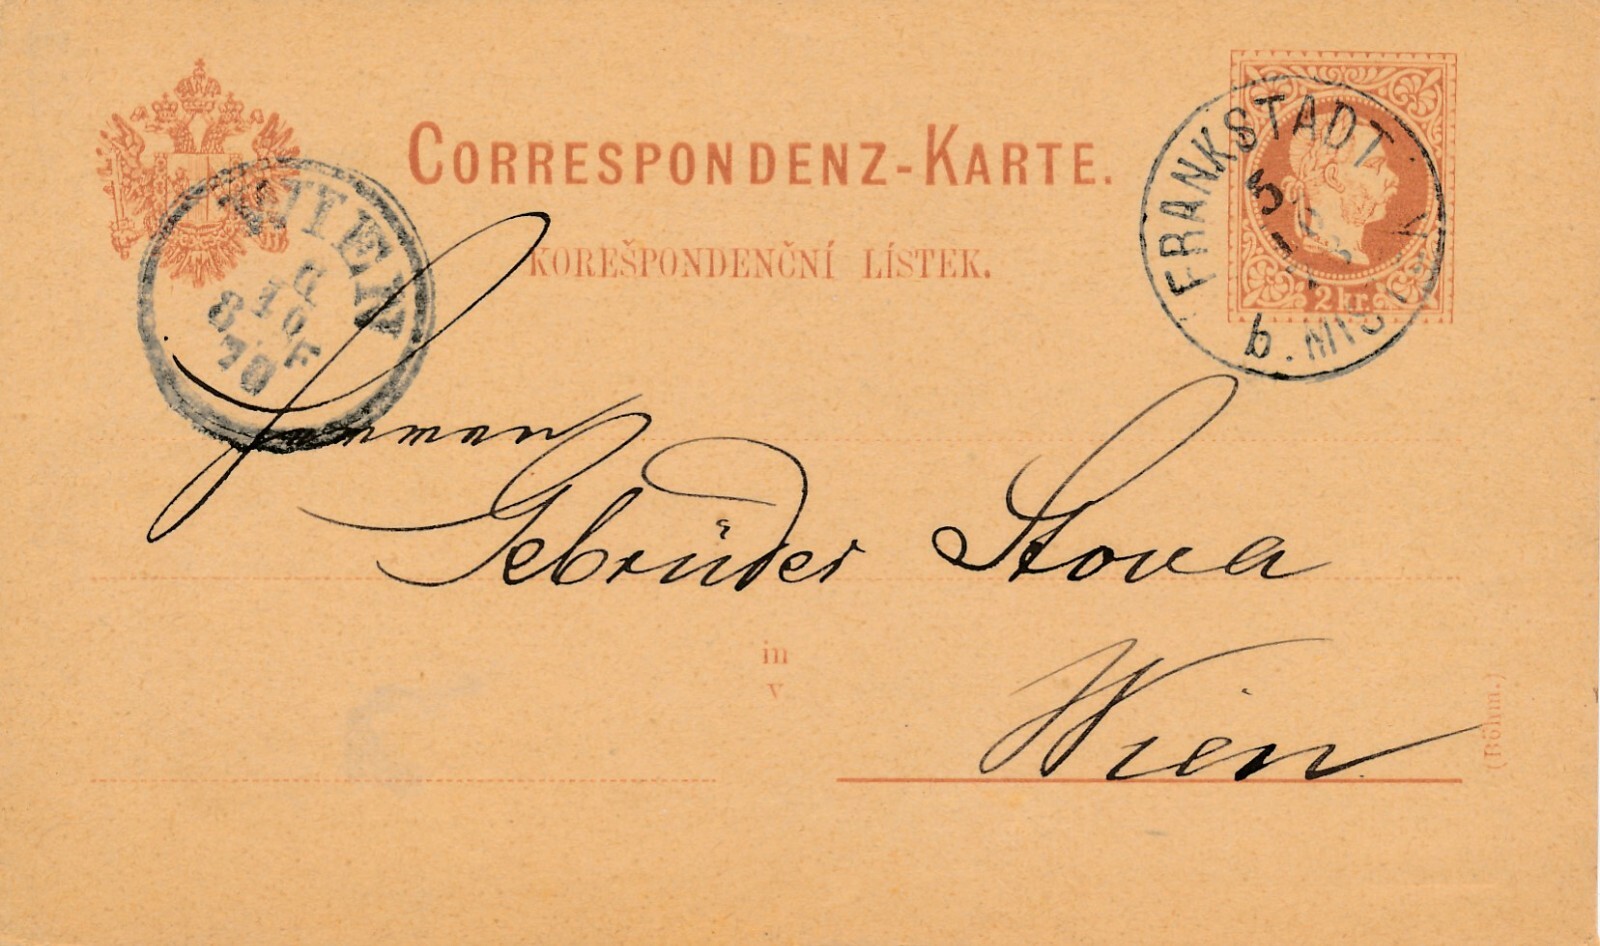 CORRESPONDENZ-KARTE.
KOREŠPONDENČNÍ LÍSTEK.
2 kr.
FRANKSTADT
b. MIS
WIEN
Gebrüder Stova
in
v
Wien
(Böhm.)